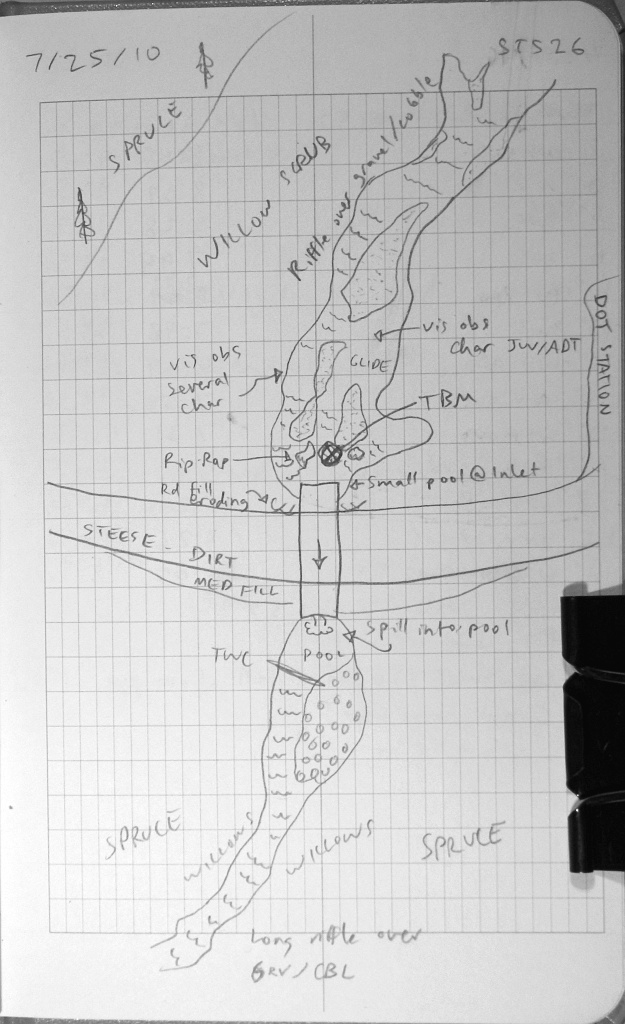 7/25/10
STS26
SPRUCE
WILLOW SCRUB
Riffle over gravel/cobble
DOT STATION
vis obs
char JW/ADT
GLIDE
vis obs
several
char
TBM
Rip-Rap
Small pool @ Inlet
Rd fill
eroding
STEESE - DIRT
MED FILL
Spill into pool
TWC
POOL
SPRUCE
WILLOWS
WILLOWS
SPRUCE
Long riffle over
GRV/CBL